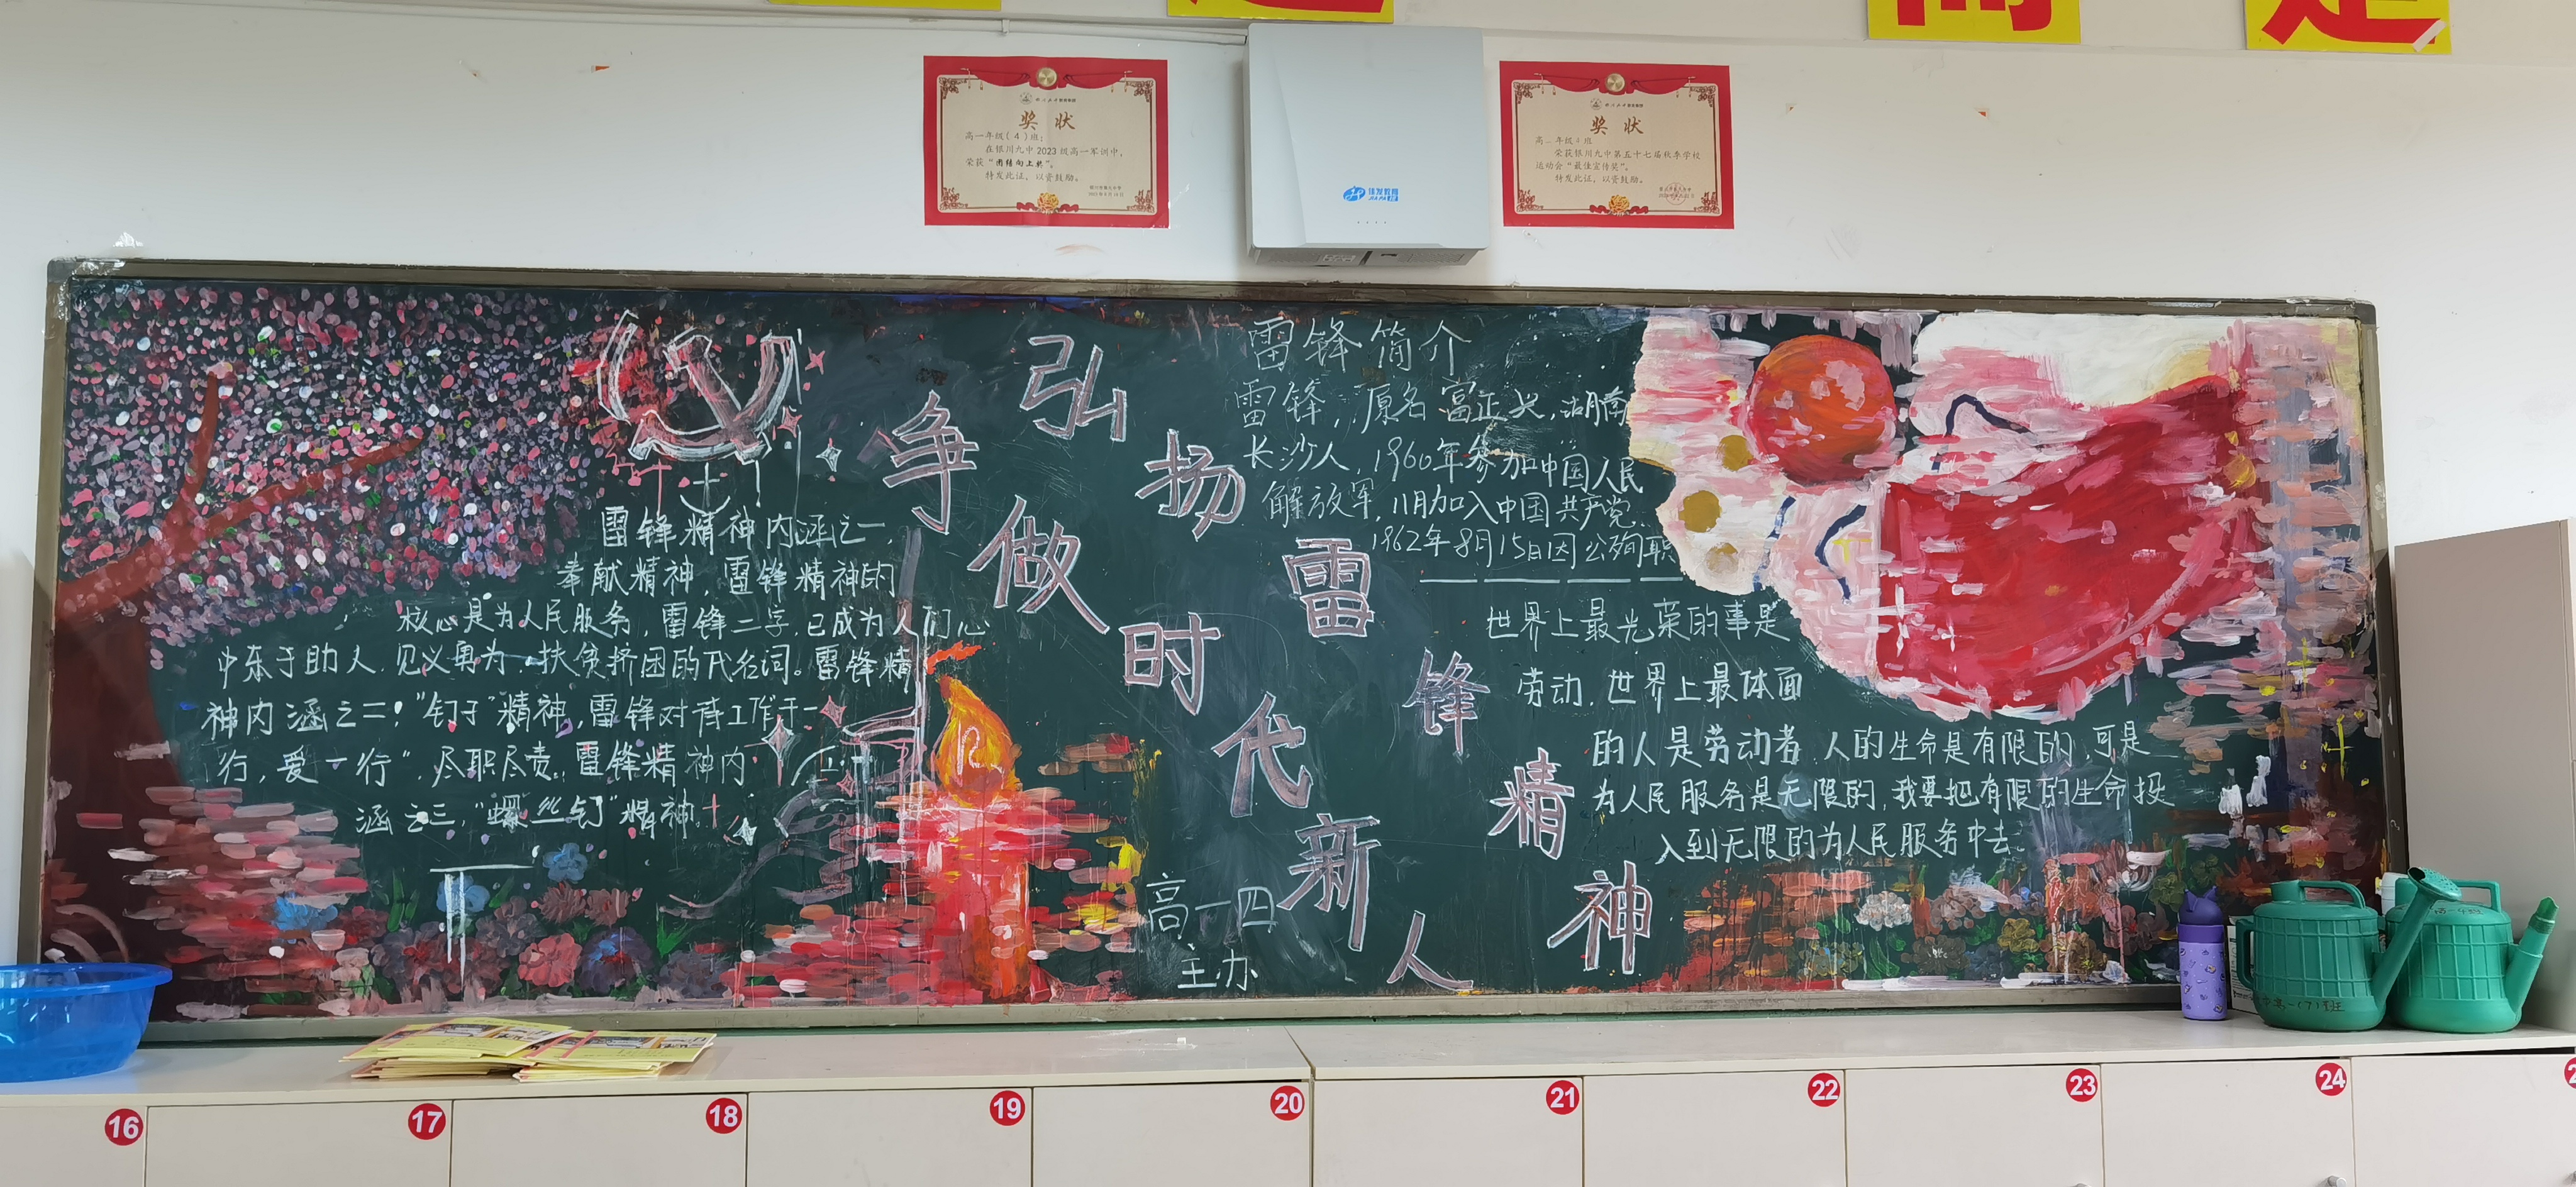 奖状
高一年级（4）班：
在银川九中2023级高一军训中，
荣获“团结向上奖”。
特发此证，以资鼓励。
佳发教育
JIAFA
奖状
荣获银川九中第五十七届秋季学校
运动会“最佳宣传奖”。
特发此证，以资鼓励。
弘扬雷锋精神
争做时代新人
雷锋精神内涵之一，
奉献精神，雷锋精神的
核心是为人民服务，雷锋二字，已成为人们心
中乐于助人，见义勇为，扶贫挤困的代名词。雷锋精
神内涵之二：“钉子”精神，雷锋对待工作干一
行，爱一行“，尽职尽责。雷锋精神内
涵之三，“螺丝钉”精神。
雷锋简介
雷锋，原名 富正兴，湖南
长沙人，1960年参加中国人民
解放军，11月加入中国共产党。
1962年8月15日因公殉职
世界上最光荣的事是
劳动，世界上最体面
的人是劳动者，人的生命是有限的，可是
为人民服务是无限的，我要把有限的生命投
入到无限的为人民服务中去。
高一四
主办
高一(7)班
16
17
18
19
20
21
22
23
24